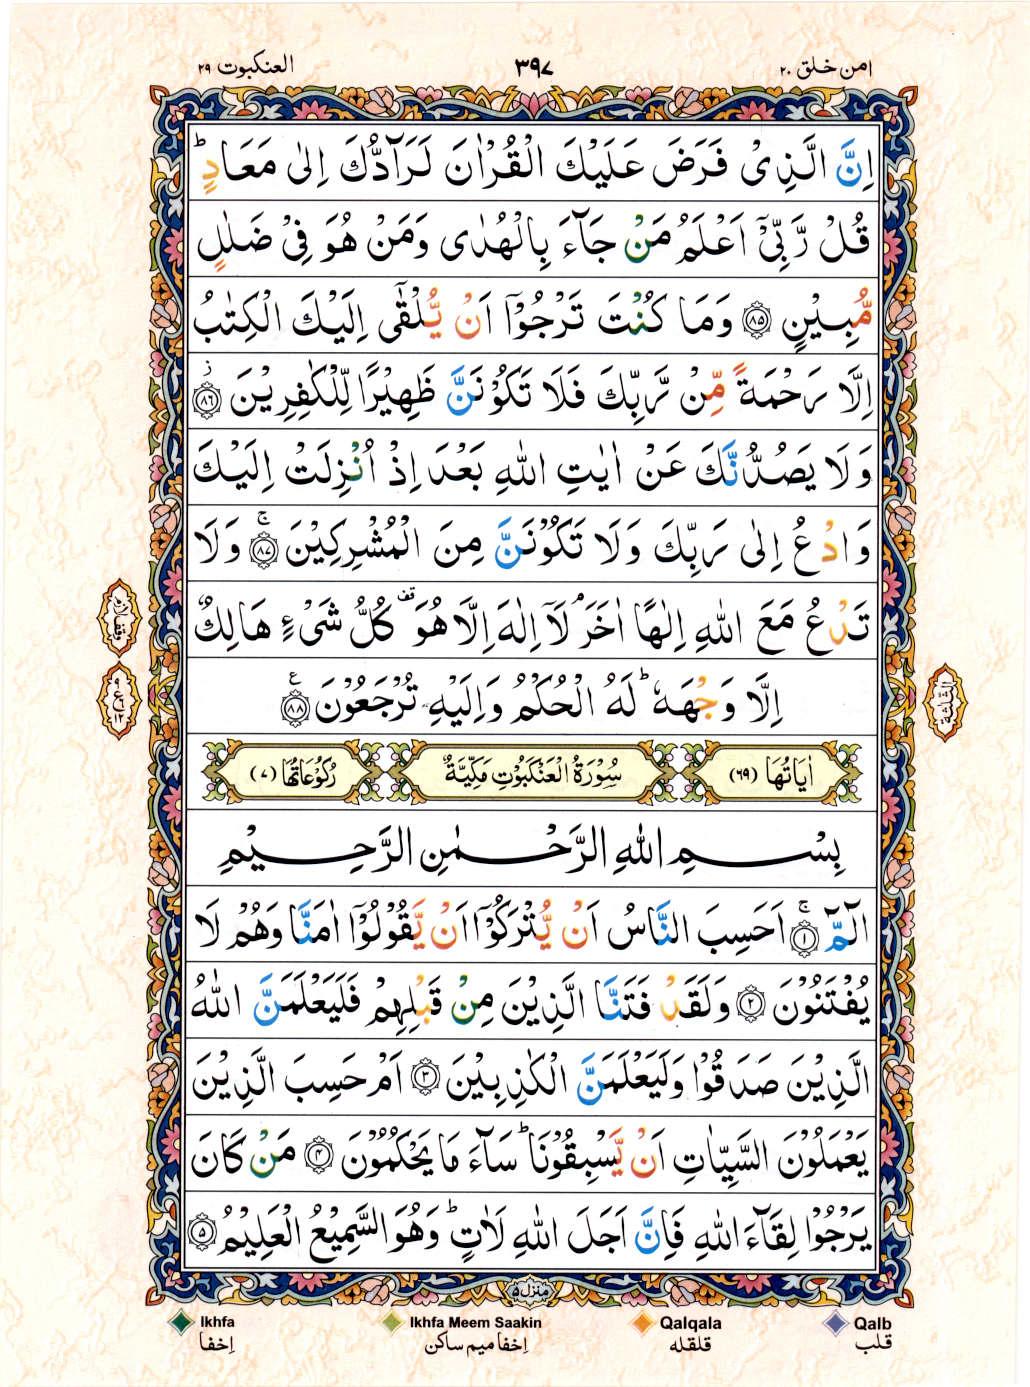 امن خلق ٢٠
٣٩٧
العنكبوت ٢٩
اِنَّ الَّذِیْ فَرَضَ عَلَیْكَ الْقُرْاٰنَ لَرَآدُّكَ اِلٰی مَعَادٍ ؕ
قُلْ رَّبِّیْۤ اَعْلَمُ مَنْ جَآءَ بِالْهُدٰی وَمَنْ هُوَ فِیْ ضَلٰلٍ
مُّبِیْنٍ ﴿٨٥﴾ وَمَا كُنْتَ تَرْجُوْۤا اَنْ یُّلْقٰۤی اِلَیْكَ الْكِتٰبُ
اِلَّا رَحْمَةً مِّنْ رَّبِّكَ فَلَا تَكُوْنَنَّ ظَهِیْرًا لِّلْكٰفِرِیْنَ ﴿٨٦﴾
وَلَا یَصُدُّنَّكَ عَنْ اٰیٰتِ اللّٰهِ بَعْدَ اِذْ اُنْزِلَتْ اِلَیْكَ
وَادْعُ اِلٰی رَبِّكَ وَلَا تَكُوْنَنَّ مِنَ الْمُشْرِكِیْنَ ﴿٨٧﴾ وَلَا
تَدْعُ مَعَ اللّٰهِ اِلٰهًا اٰخَرَ ۘ لَاۤ اِلٰهَ اِلَّا هُوَ ۫ كُلُّ شَیْءٍ هَالِكٌ
اِلَّا وَجْهَهٗ ؕ لَهُ الْحُكْمُ وَاِلَیْهِ تُرْجَعُوْنَ ﴿٨٨﴾
اٰیَاتُهَا (٦٩)
سُوْرَةُ الْعَنْكَبُوْتِ مَكِّیَّةٌ
رُكُوْعَاتُهَا (٧)
بِسْمِ اللّٰهِ الرَّحْمٰنِ الرَّحِیْمِ
الٓمّٓ ﴿١﴾ اَحَسِبَ النَّاسُ اَنْ یُّتْرَكُوْۤا اَنْ یَّقُوْلُوْۤا اٰمَنَّا وَهُمْ لَا
یُفْتَنُوْنَ ﴿٢﴾ وَلَقَدْ فَتَنَّا الَّذِیْنَ مِنْ قَبْلِهِمْ فَلَیَعْلَمَنَّ اللّٰهُ
الَّذِیْنَ صَدَقُوْا وَلَیَعْلَمَنَّ الْكٰذِبِیْنَ ﴿٣﴾ اَمْ حَسِبَ الَّذِیْنَ
یَعْمَلُوْنَ السَّیِّاٰتِ اَنْ یَّسْبِقُوْنَا ؕ سَآءَ مَا یَحْكُمُوْنَ ﴿۴﴾ مَنْ كَانَ
یَرْجُوْا لِقَآءَ اللّٰهِ فَاِنَّ اَجَلَ اللّٰهِ لَاٰتٍ ؕ وَهُوَ السَّمِیْعُ الْعَلِیْمُ ﴿٥﴾
وقف لازم
الثلثة
منزل ٥
Ikhfa
إخفا
Ikhfa Meem Saakin
إخفا میم ساکن
Qalqala
قلقله
Qalb
قلب